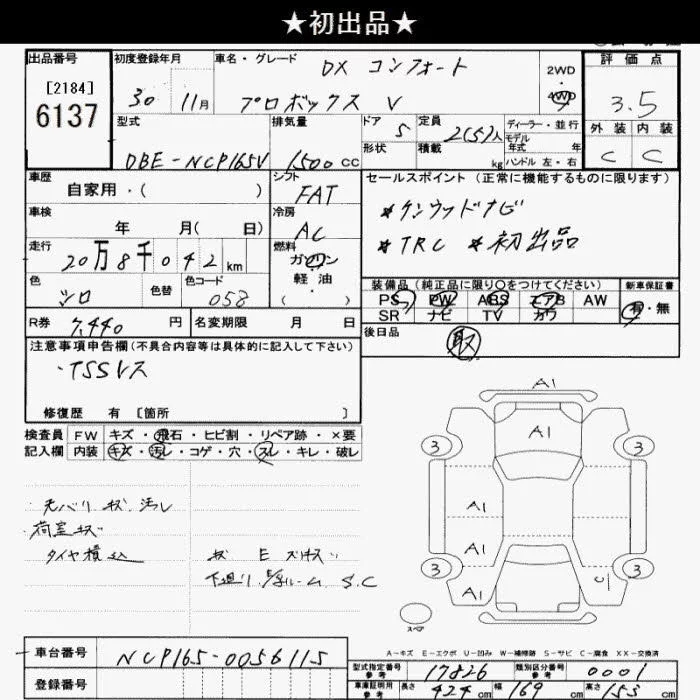 ★初出品★
出品番号
[2184]
6137
初度登録年月
30 11月
車名・グレード
DX コンフォート
プロボックス V
2WD
・
4WD
評価点
3.5
外装 内装
C C
型式
DBE-NCP165V
排気量
1500 CC
ドア
5
形状
定員
2(5)人
積載
kg
ディーラー・並行
モデル
年式 年
ハンドル 左・右
車歴
自家用・( )
シフト
FAT
車検
年 月( 日)
冷房
AC
走行
20万8千042km
燃料
ガソリン
軽油
・( )
色
シロ
色替
色コード
058
R券
7,440 円
名変期限 月 日
セールスポイント(正常に機能するものに限ります)
*ケンウッドナビ
*TRC *初出品
装備品(純正品に限り○をつけてください)
新車保証書
PS PW ABS エアB AW
SR ナビ TV カワ
有・無
後日品
取
注意事項申告欄(不具合内容等は具体的に記入して下さい)
・TSSレス
修復歴 有 [箇所 ]
検査員
記入欄
FW キズ・飛石・ヒビ割・リペア跡・×要
内装 キズ・汚レ・コゲ・穴・スレ・キレ・破レ
元バリ キズ 汚レ
荷室キズ
タイヤ積込
キズ E スリキズ
下廻り S.C
A1
A1
3 3
A1
A1
3 3
A1 C1
スペア
A-キズ E-エクボ U-凹み W-補修跡 S-サビ C-腐食 XX-交換済
車台番号
NCP165-0056115
登録番号
型式指定番号
参考
17826
類別区分番号
参考
0001
車庫証明用
参考
長さ 424 cm 幅 169 cm 高さ 153 cm